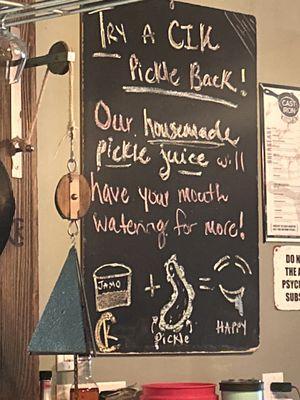 TRY A CIK
Pickle Back!
Our housemade
pickle juice will
have your mouth
watering for more!
JAMO
+
=
Pickle
HAPPY
CAST
IRON
BREAKFAST
DO N
THE
PSYC
SUBS